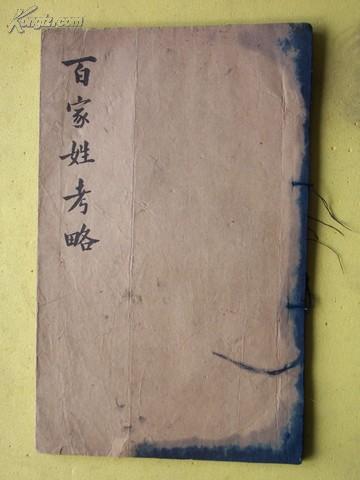 Kongfz.com
百家姓考略